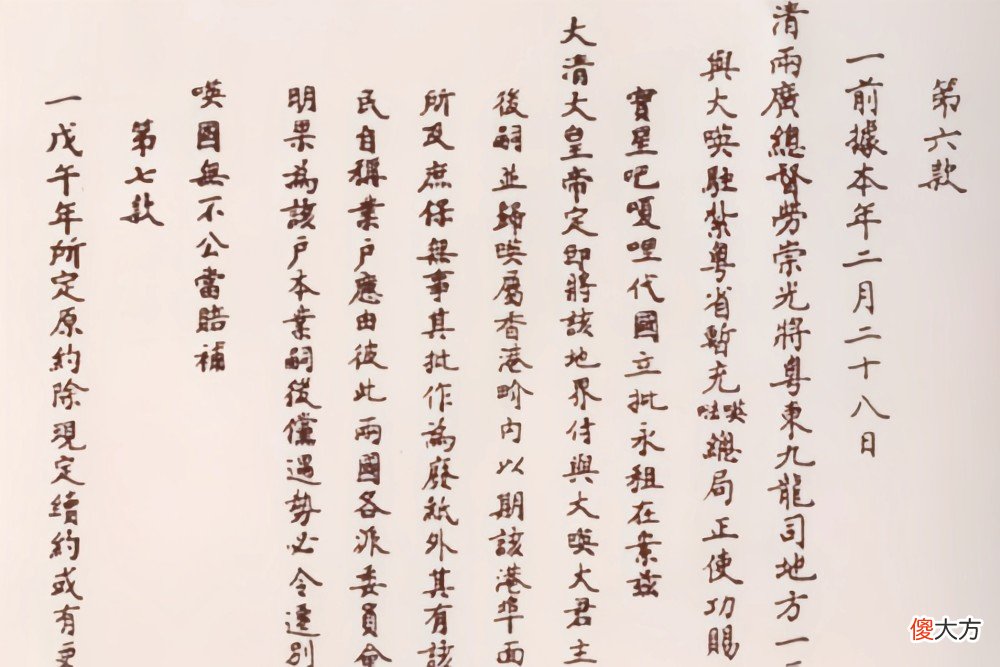 第六款
一前據本年二月二十八日
清兩廣總督勞崇光將粤東九龍司地方一
與大㖸駐紮粤省暫充㖸𠵽總局正使功賜
寶星吧嗄哩代國立批永租在案兹
大清大皇帝定即將該地界付與大㖸大君主
後嗣並歸㖸屬香港界内以期該港埠面
所及庶保無事其批作為廢紙外其有該
民自稱業户應由彼此兩國各派委員會
明果為該户本業嗣後儻遇勢必令遷别
㖸國無不公當賠補
第七款
一戊午年所定原約除現定續約或有
傻大方